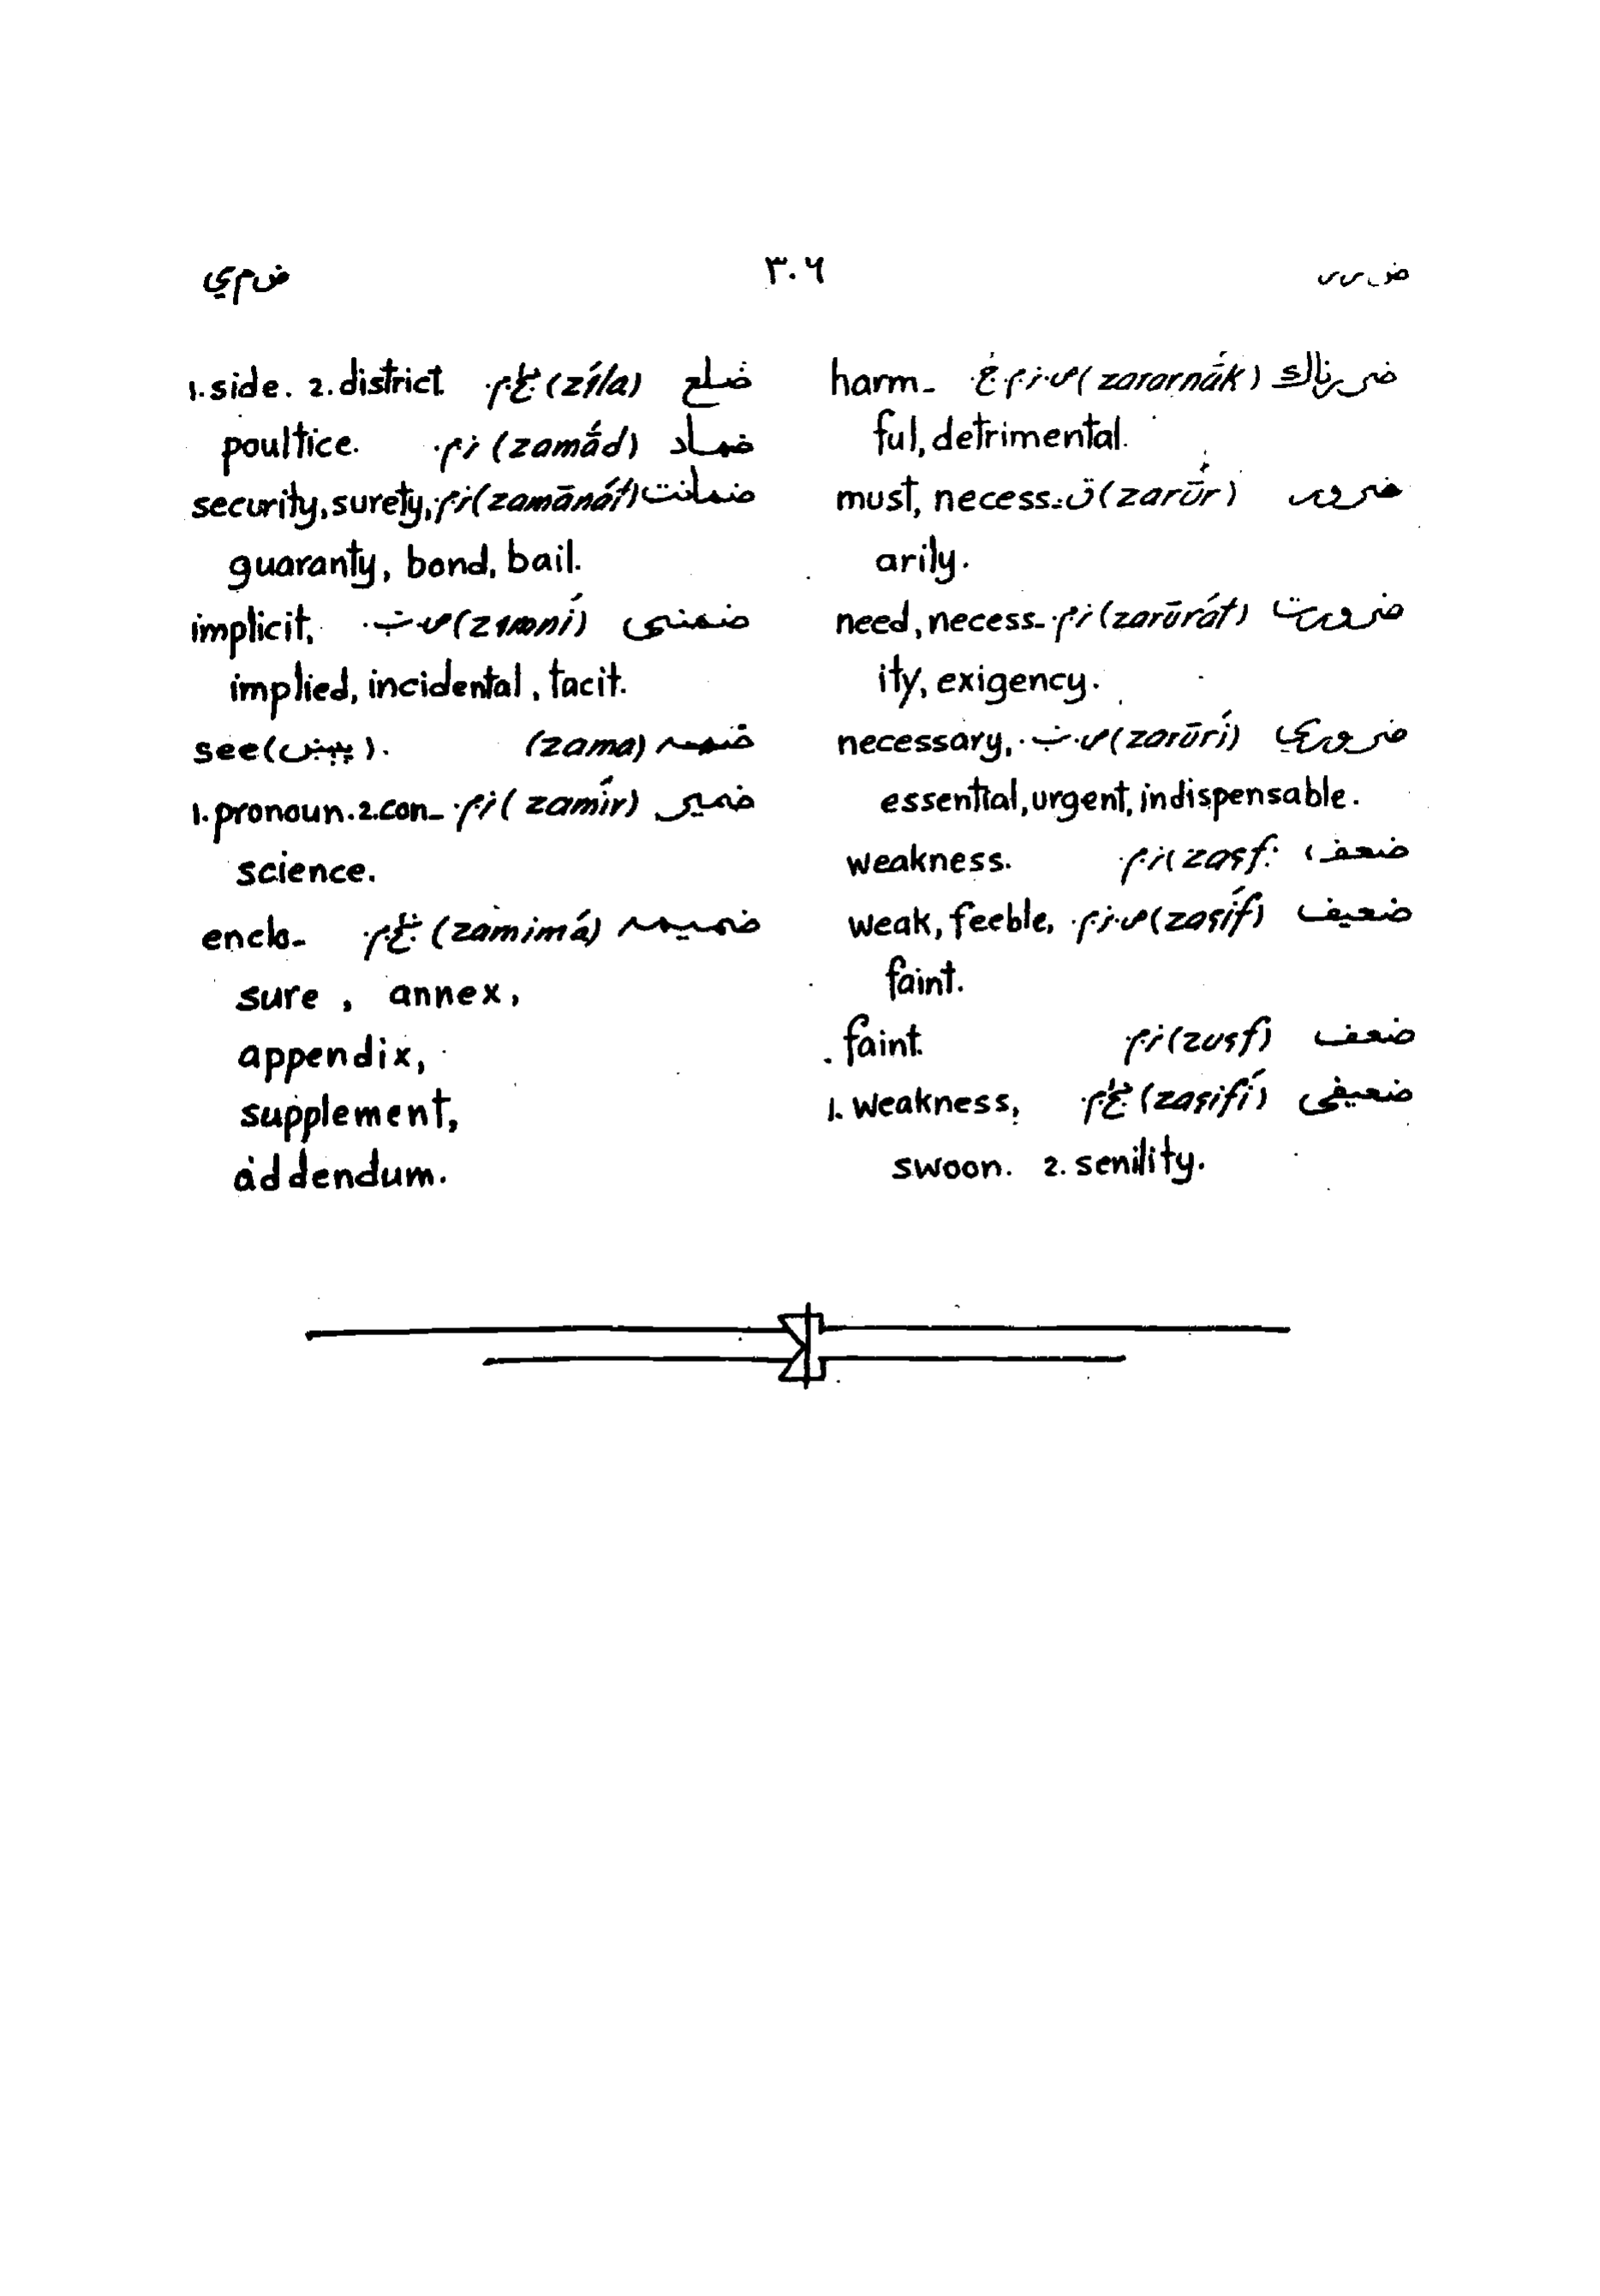 ض‌رر ٣٠٦ ض‌مي
ضررناك (zararnák) ص.ز.م harm-
ful, detrimental.
ضرور (zarūr) ق must, necess-
arily.
ضرورت (zarūrát) ز.م. need, necess-
ity, exigency.
ضروري (zarūrí) ص.ب. necessary,
essential, urgent, indispensable.
ضعف (zaʕf) ز.م. weakness.
ضعيف (zaʕíf) ص.ز.م. weak, feeble,
faint.
ضعف (zuʕf) ز.م faint.
ضعيفى (zaʕifí) 1. weakness,
swoon. 2. senility.
ضلع (zíla) 1. side. 2. district.
ضماد (zamā́d) ز.م. poultice.
ضمانت (zamānát) ز.م. security, surety,
guaranty, bond, bail.
ضمنى (zimní) ص.ب. implicit,
implied, incidental, tacit.
ضمه (zama) see (پېښ).
ضمير (zamír) ز.م. 1. pronoun. 2. con-
science.
ضميمه (zamimá) enclo-
sure, annex,
appendix,
supplement,
addendum.